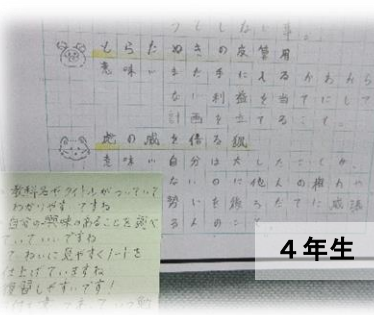 つとしない事。
とらたぬきの皮算用
意味いまだ手に入るかわから
ない利益を当てにして
計画を立てること。
虎の威を借る狐
意味い自分は大したことでか
ないのに他人の権力の
勢いを借るたてに威張
る人のこと。
教科名やタイトルがついていて
わかりやすいですね
自分の興味のあることを調べ
ていていいですね
ていねいに見やすくノートを
仕上げていますね
復習しやすいです!
4年生